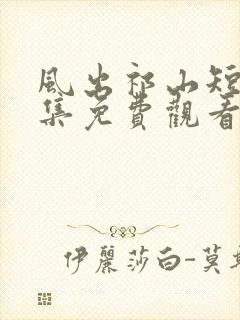 風出祁山短
集免費觀看
伊麗莎白-莫